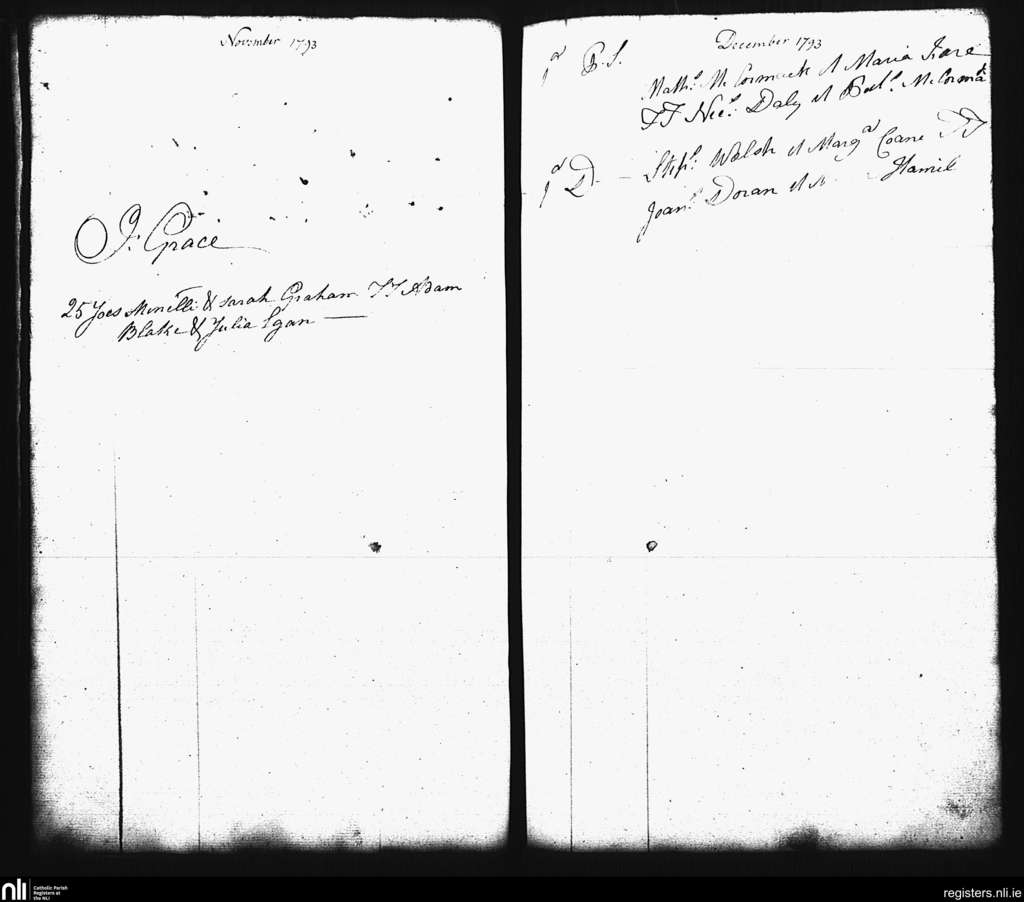 November 1793
J: Grace
25 Joes Minetti & Sarah Graham TT Adam
Blake & Julia Egan —
December 1793
1ª B. S.
Mathˢ McCormick et Maria
TT Nicˢ Daly et McCorm
1ª D. — Stepˢ Walsh et Margª Coane TT
Joanˢ Doran et Hamil
nli
Catholic Parish
Registers at
the NLI
registers.nli.ie